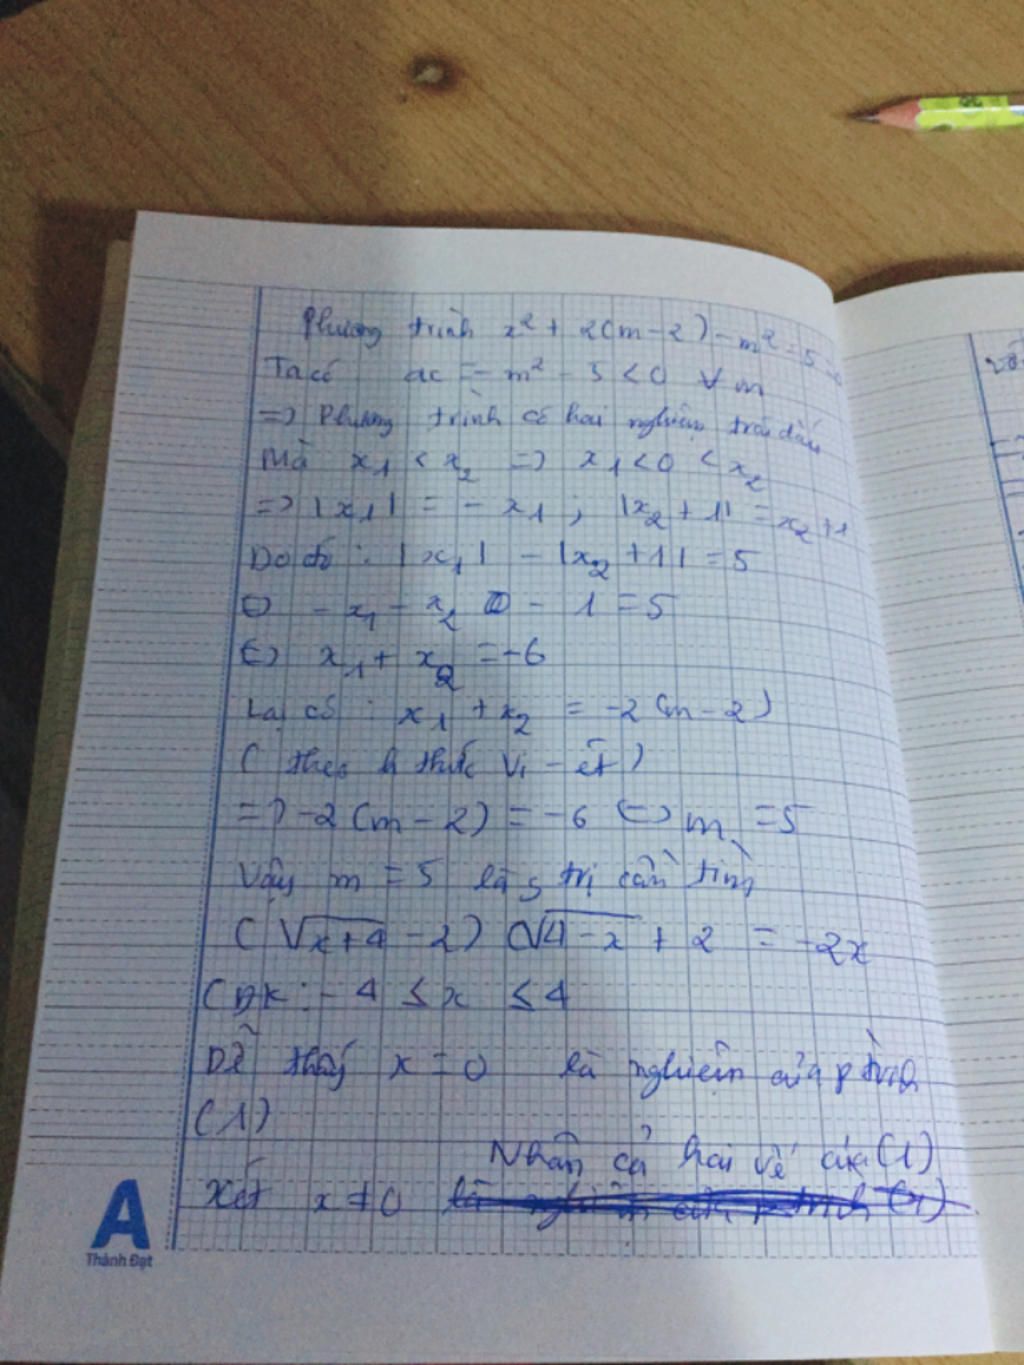 Phương trình x² + 2(m-2) - m² - 5 = 0
Ta có ac = -m² - 5 < 0 ∀ m
=> Phương trình có hai nghiệm trái dấu
Mà x₁ < x₂ => x₁ < 0 < x₂
=> |x₁| = - x₁ ; |x₂ + 1| = x₂ + 1
Do đó : |x₁| - |x₂ + 1| = 5
<=> - x₁ - x₂ - 1 = 5
<=> x₁ + x₂ = -6
Lại có : x₁ + x₂ = -2(m - 2)
( theo h thức Vi - ét )
=> -2(m - 2) = -6 <=> m = 5
Vậy m = 5 là g trị cần tìm
(√x+4 - 2) (√4-x + 2 = -2x
(ĐK : - 4 ≤ x ≤ 4
Dễ thấy x = 0 là nghiệm của p trình
(1)
Nhân cả hai vế của (1)
Xét x ≠ 0
A
Thành Đạt